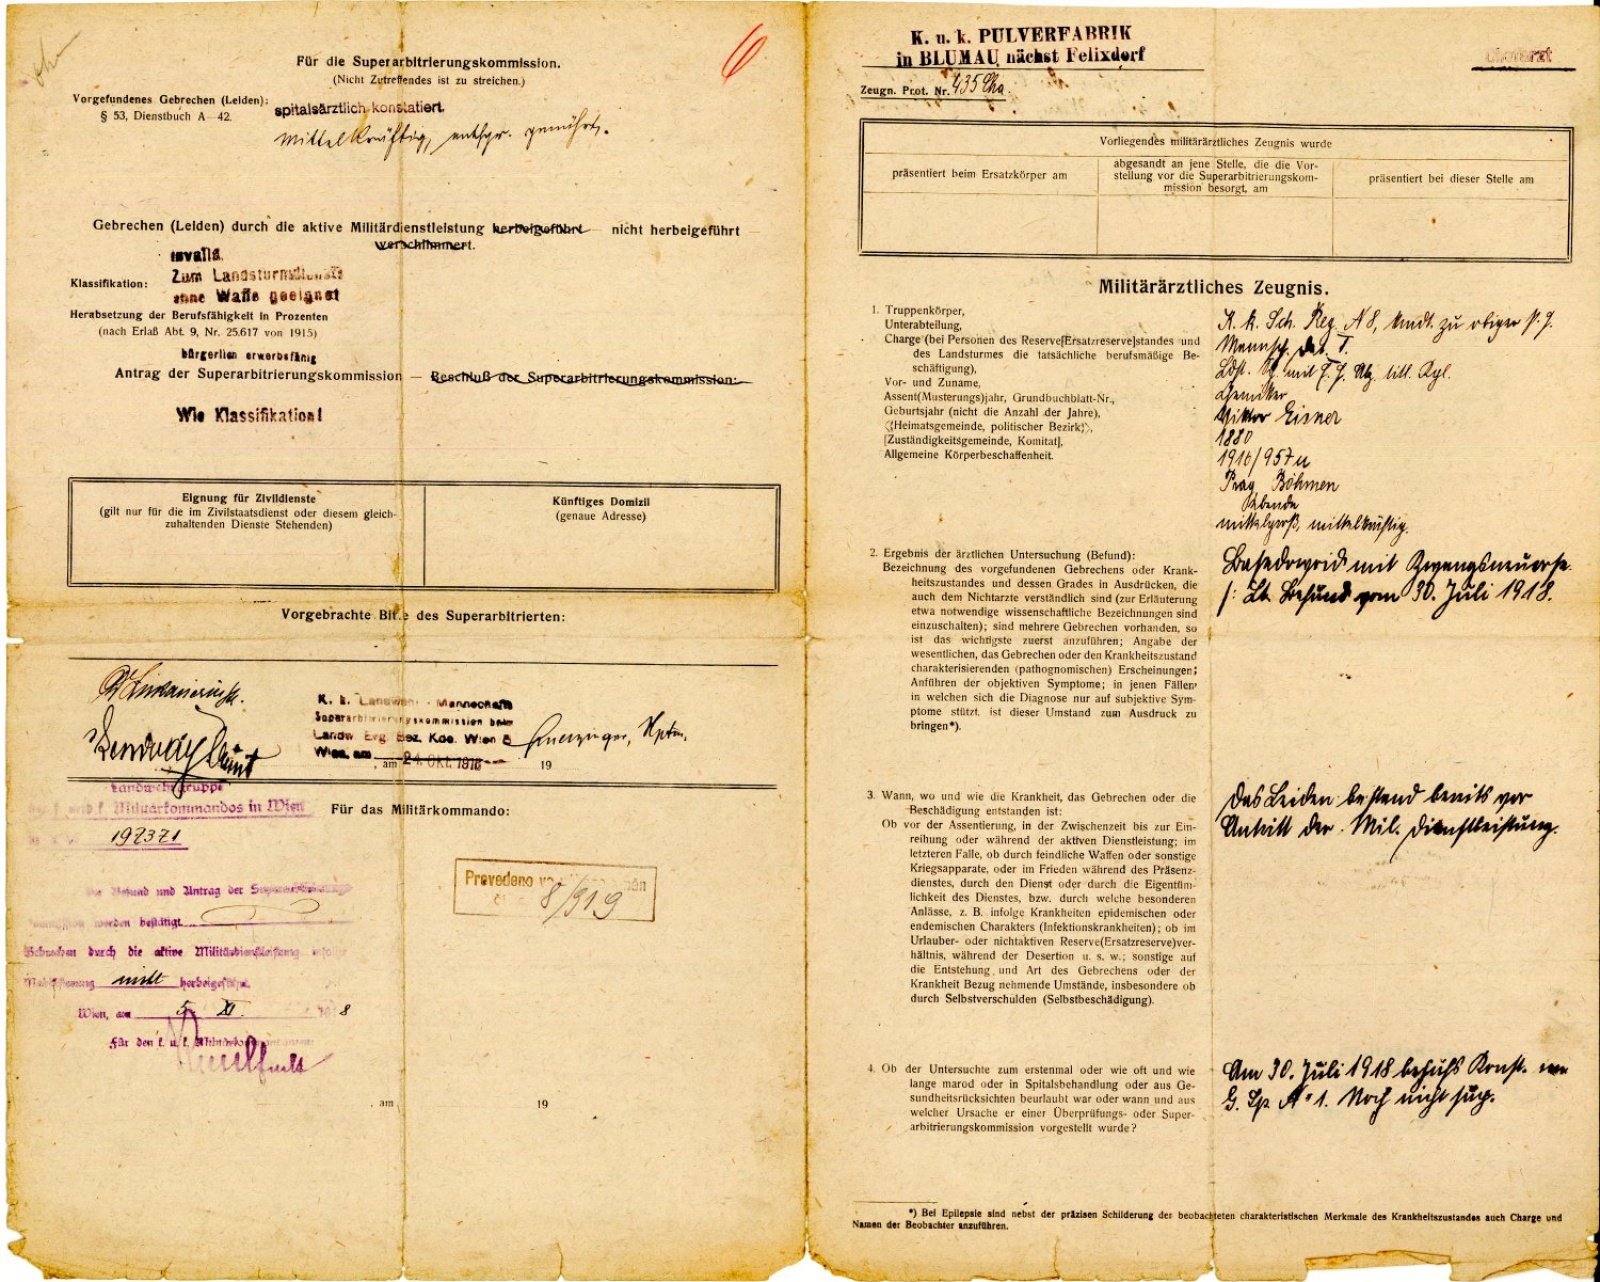 Für die Superarbitrierungskommission.
(Nicht Zutreffendes ist zu streichen.)
6
Vorgefundenes Gebrechen (Leiden):
§ 53, Dienstbuch A—42.
spitalsärztlich konstatiert.
mittelkräftig, entspr. genährt.
Gebrechen (Leiden) durch die aktive Militärdienstleistung herbeigeführt — nicht herbeigeführt —
verschlimmert.
invalid.
Klassifikation: Zum Landsturmdienste
ohne Waffe geeignet
Herabsetzung der Berufsfähigkeit in Prozenten
(nach Erlaß Abt. 9, Nr. 25.617 von 1915)
bürgerlich erwerbsfähig
Antrag der Superarbitrierungskommission — Beschluß der Superarbitrierungskommission:
Wie Klassifikation!
Eignung für Zivildienste
(gilt nur für die im Zivilstaatsdienst oder diesem gleich-
zuhaltenden Dienste Stehenden)
Künftiges Domizil
(genaue Adresse)
Vorgebrachte Bitte des Superarbitrierten:
K. k. Landwehr - Mannschafts
Superarbitrierungskommission beim
Landw. Erg. Bez. Kdo. Wien
Wien, am 24. Okt. 1918
, am 19
Hptm.
Landwehrgruppe
Militärkommandos in Wien
197371
Für das Militärkommando:
Befund und Antrag der Superarbitrierungs-
kommission werden bestätigt.
Gebrechen durch die aktive Militärdienstleistung infolge
Mobilisierung nicht herbeigeführt.
Wien, am 5. XI. 1918
Für den k. u. k. Militärkommandanten:
Prevedeno
8/919
, am 19
K. u. k. PULVERFABRIK
in BLUMAU nächst Felixdorf
Zeugn. Prot. Nr. 435
Vorliegendes militärärztliches Zeugnis wurde
präsentiert beim Ersatzkörper am
abgesandt an jene Stelle, die die Vor-
stellung vor die Superarbitrierungskom-
mission besorgt, am
präsentiert bei dieser Stelle am
Militärärztliches Zeugnis.
1. Truppenkörper,
Unterabteilung,
Charge (bei Personen des Reserve[Ersatzreserve]standes und
des Landsturmes die tatsächliche berufsmäßige Be-
schäftigung),
Vor- und Zuname,
Assent(Musterungs)jahr, Grundbuchblatt-Nr.,
Geburtsjahr (nicht die Anzahl der Jahre),
(Heimatsgemeinde, politischer Bezirk),
[Zuständigkeitsgemeinde, Komitat],
Allgemeine Körperbeschaffenheit.
K. k. Sch. Reg. N 8, zu obiger P. F.
Mannsch. Det. I.
Chemiker
Viktor Eisner
1880
1916/957
Prag Böhmen
mittelgroß, mittelkräftig.
2. Ergebnis der ärztlichen Untersuchung (Befund):
Bezeichnung des vorgefundenen Gebrechens oder Krank-
heitszustandes und dessen Grades in Ausdrücken, die
auch dem Nichtarzte verständlich sind (zur Erläuterung
etwa notwendige wissenschaftliche Bezeichnungen sind
einzuschalten); sind mehrere Gebrechen vorhanden, so
ist das wichtigste zuerst anzuführen; Angabe der
wesentlichen, das Gebrechen oder den Krankheitszustand
charakterisierenden (pathognomischen) Erscheinungen;
Anführen der objektiven Symptome; in jenen Fällen,
in welchen sich die Diagnose nur auf subjektive Sym-
ptome stützt, ist dieser Umstand zum Ausdruck zu
bringen*).
Basedowoid mit Zwangsneurose
/: Lt. Befund vom 30. Juli 1918.
3. Wann, wo und wie die Krankheit, das Gebrechen oder die
Beschädigung entstanden ist:
Ob vor der Assentierung, in der Zwischenzeit bis zur Ein-
reihung oder während der aktiven Dienstleistung; im
letzteren Falle, ob durch feindliche Waffen oder sonstige
Kriegsapparate, oder im Frieden während des Präsenz-
dienstes, durch den Dienst oder durch die Eigentüm-
lichkeit des Dienstes, bzw. durch welche besonderen
Anlässe, z. B. infolge Krankheiten epidemischen oder
endemischen Charakters (Infektionskrankheiten); ob im
Urlauber- oder nichtaktiven Reserve(Ersatzreserve)ver-
hältnis, während der Desertion u. s. w.; sonstige auf
die Entstehung und Art des Gebrechens oder der
Krankheit Bezug nehmende Umstände, insbesondere ob
durch Selbstverschulden (Selbstbeschädigung).
Das Leiden bestand bereits vor
Antritt der Mil. Dienstleistung.
4. Ob der Untersuchte zum erstenmal oder wie oft und wie
lange marod oder in Spitalsbehandlung oder aus Ge-
sundheitsrücksichten beurlaubt war oder wann und aus
welcher Ursache er einer Überprüfungs- oder Super-
arbitrierungskommission vorgestellt wurde?
Am 30. Juli 1918 behufs Konst. im
G. Sp. Nº 1. Noch nicht sup.
*) Bei Epilepsie sind nebst der präzisen Schilderung der beobachteten charakteristischen Merkmale des Krankheitszustandes auch Charge und
Namen der Beobachter anzuführen.